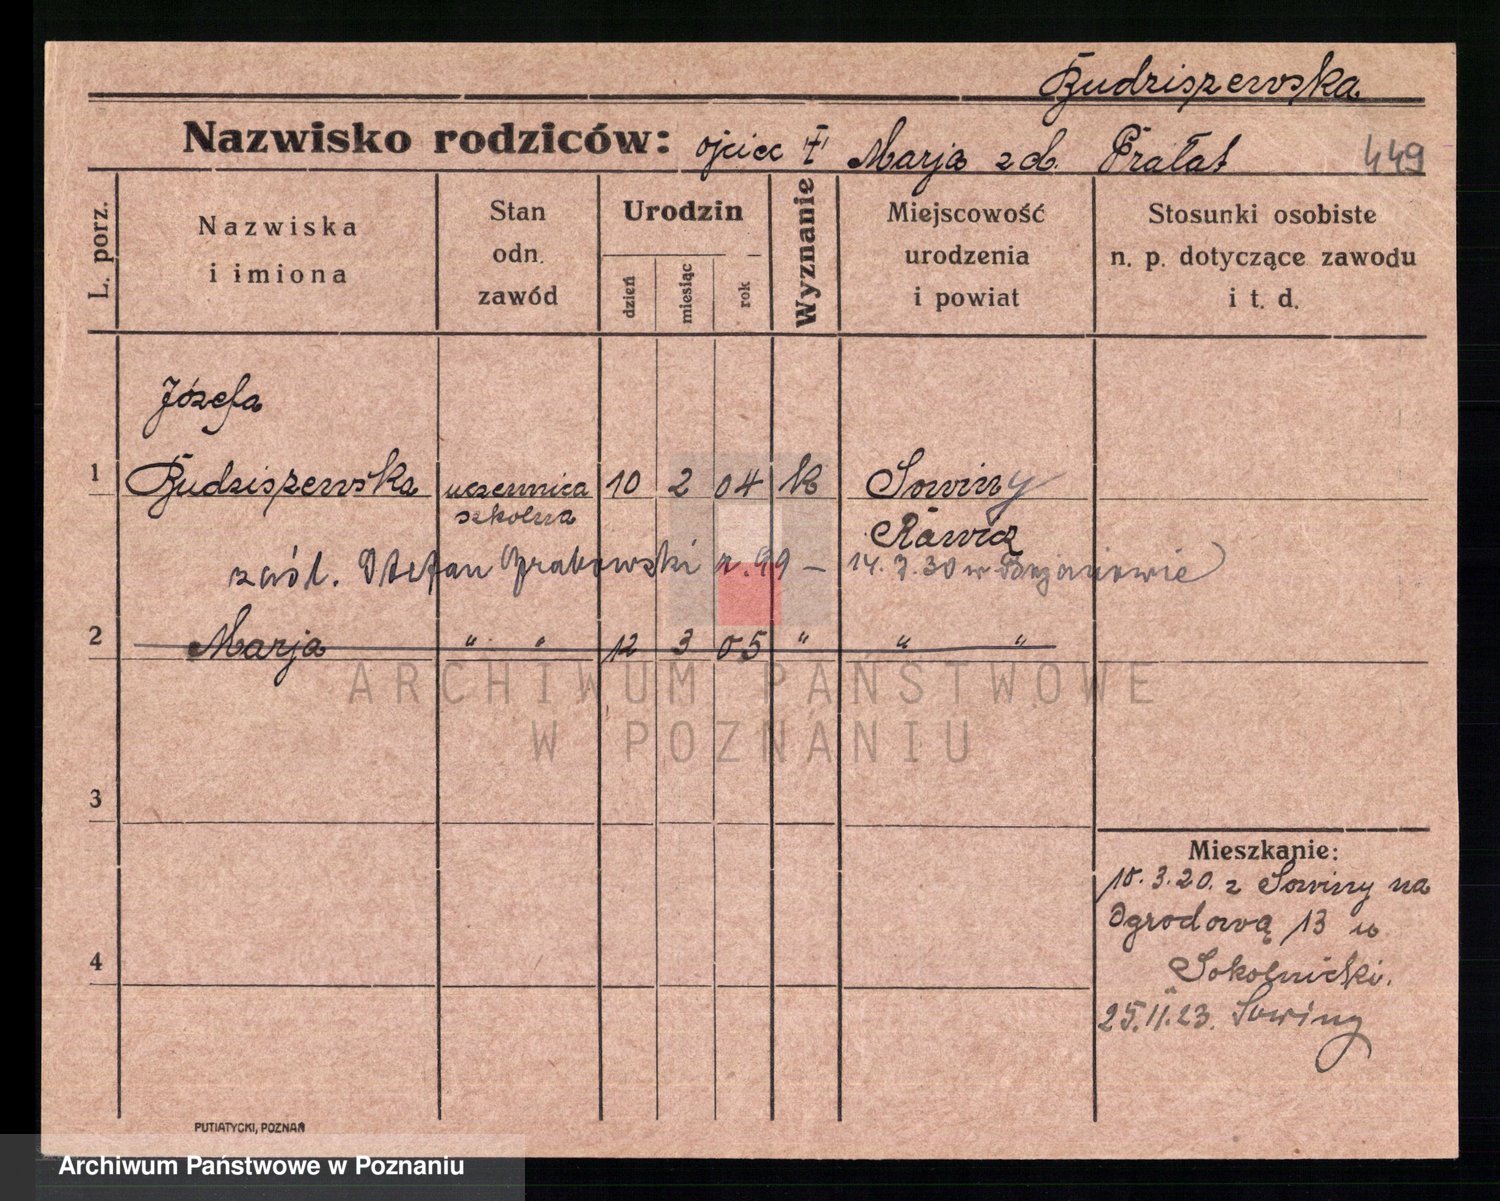 Budziszewska
Nazwisko rodziców: ojciec † Marja zd. Prałat 449
L. porz.
Nazwiska
i imiona
Stan
odn.
zawód
Urodzin
dzień
miesiąc
rok
Wyznanie
Miejscowość
urodzenia
i powiat
Stosunki osobiste
n. p. dotyczące zawodu
i t. d.
Józefa
1 Budziszewska uczennica 10 2 04 k Sowiny
szkolna Rawicz
Stefan Grabowski r. 99 – 14. 7. 30 w
2 Marja " " 12 3 05 " " "
ARCHIWUM PAŃSTWOWE
W POZNANIU
3
Mieszkanie:
10. 3. 20. z Sowiny na
Ogrodową 13 u
4
Sokolnicki.
25. 11. 23. Sowiny
PUTIATYCKI, POZNAŃ
Archiwum Państwowe w Poznaniu